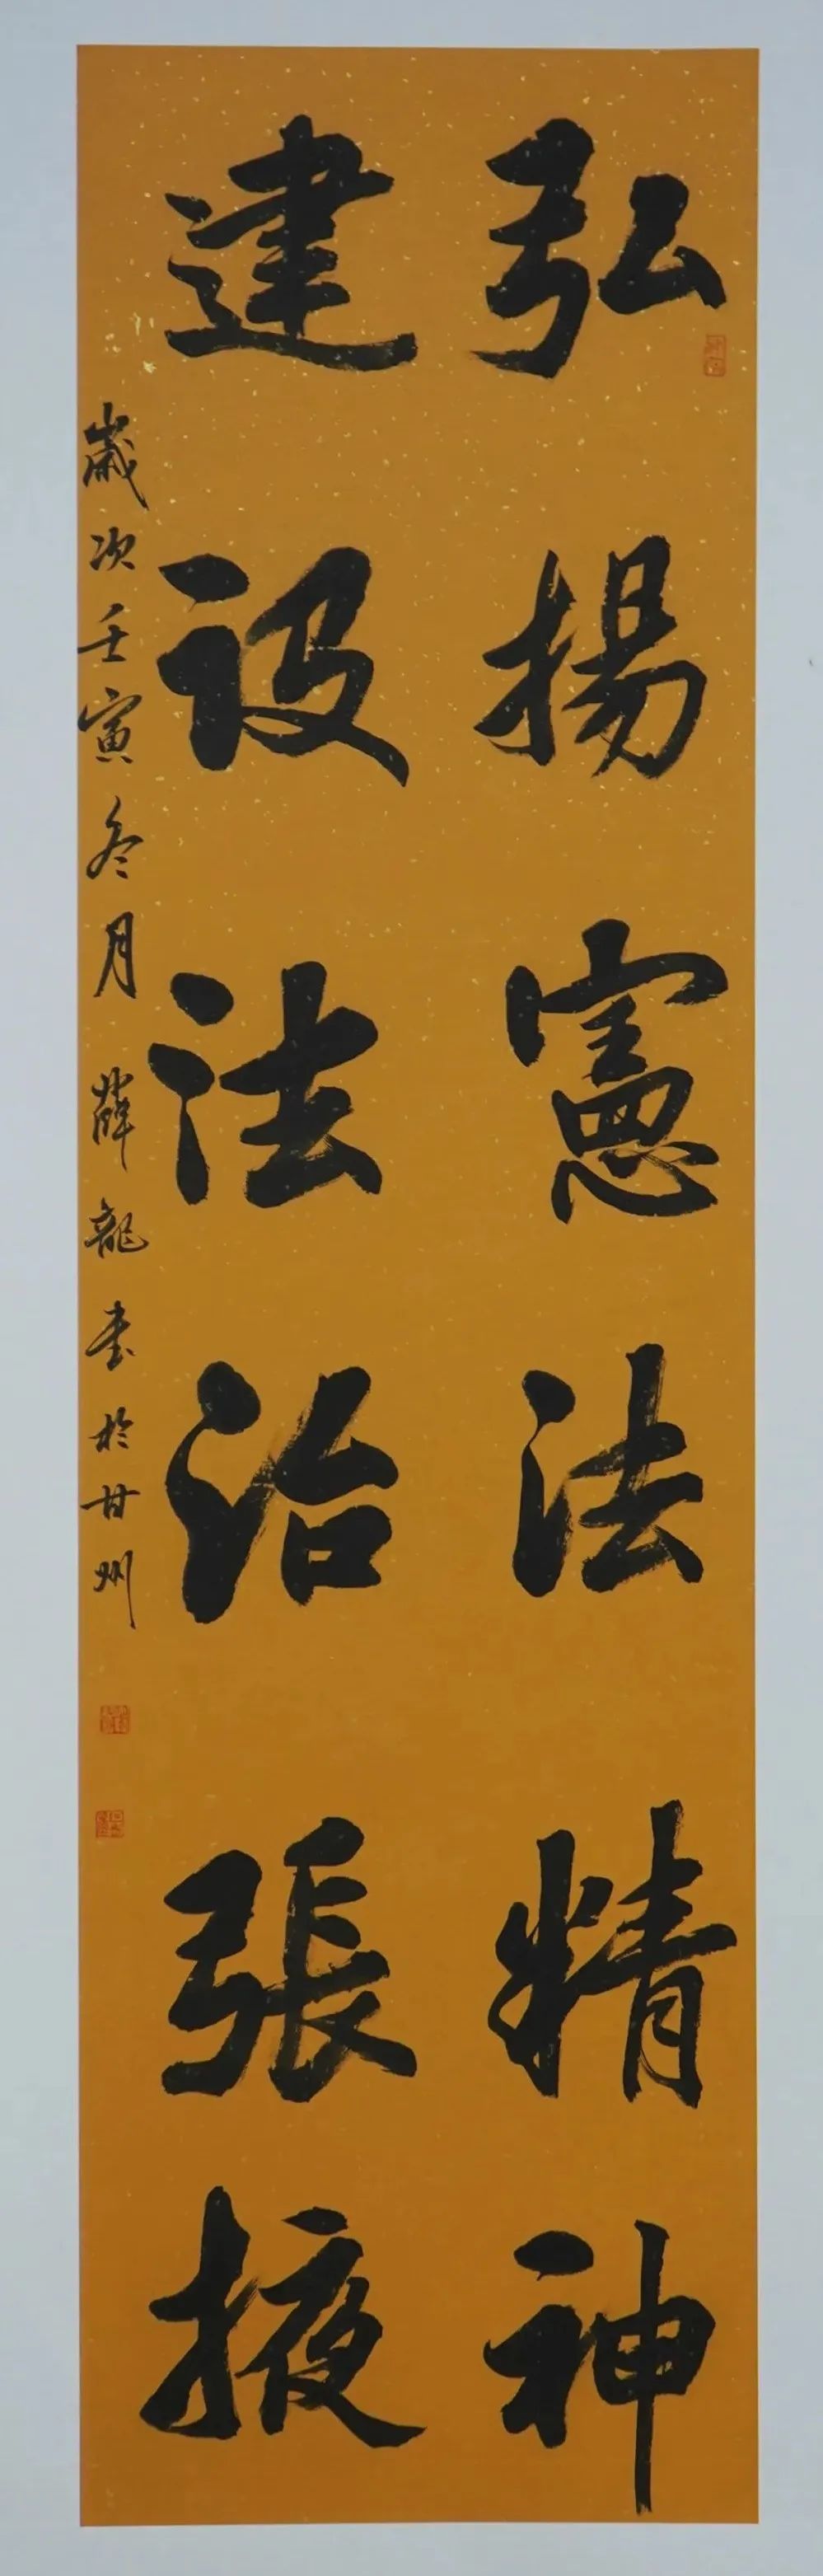 弘揚憲法精神
建設法治張掖
歲次壬寅冬月薛龍書於甘州